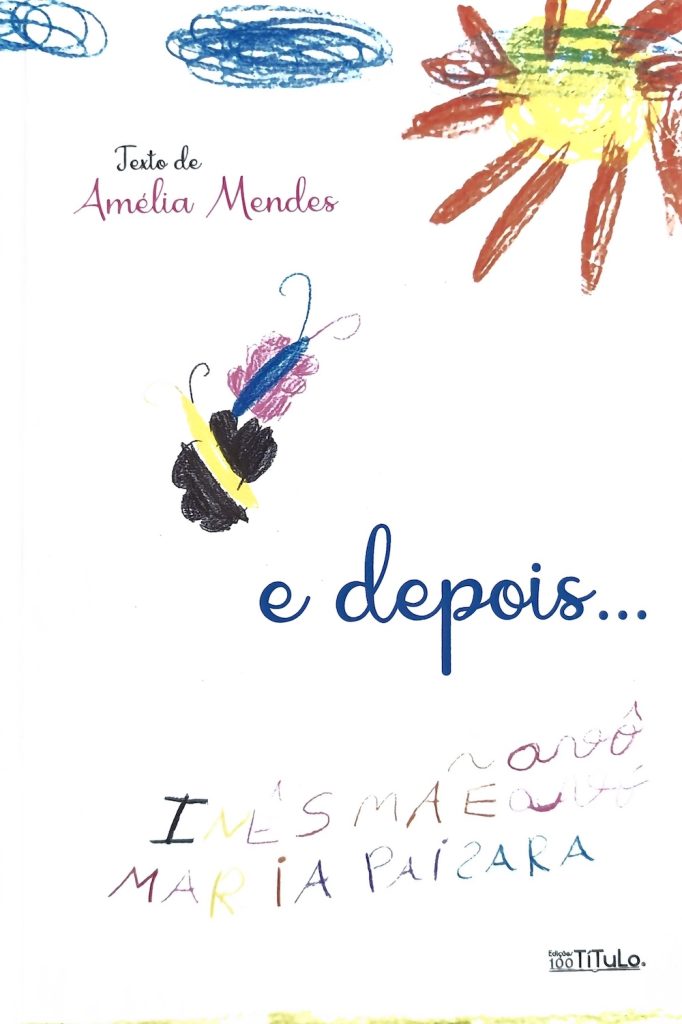 Texto de
Amélia Mendes
e depois...
avô
INÊS MÃE avó
MARIA PAI ZARA
Edições
100 TíTuLo